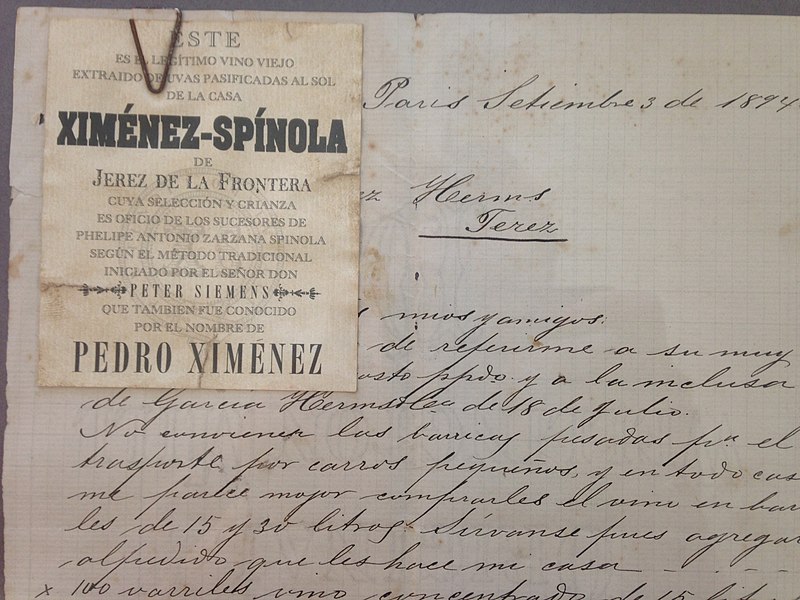 ESTE
ES EL LEGÍTIMO VINO VIEJO
EXTRAIDO DE UVAS PASIFICADAS AL SOL
DE LA CASA
XIMÉNEZ-SPÍNOLA
DE
JEREZ DE LA FRONTERA
CUYA SELECCIÓN Y CRIANZA
ES OFICIO DE LOS SUCESORES DE
PHELIPE ANTONIO ZARZANA SPINOLA
SEGÚN EL MÉTODO TRADICIONAL
INICIADO POR EL SEÑOR DON
PETER SIEMENS
QUE TAMBIEN FUE CONOCIDO
POR EL NOMBRE DE
PEDRO XIMÉNEZ
Paris Setiembre 3 de 1894
ez Herms
Jerez
mios y amigos.
de referirme a su muy
osto ppdo. y a la inclusa
de Garcia Herms &Ca de 18 de Julio.
No convienen las barricas pesadas pa el
trasporte por carros pequeños, y en todo cas
me parece mejor comprarles el vino en bar
les de 15 y 30 litros. Sirvanse pues agregar
al pedido que les hace mi casa
x 100 varriles vino concentrado de 15 lit